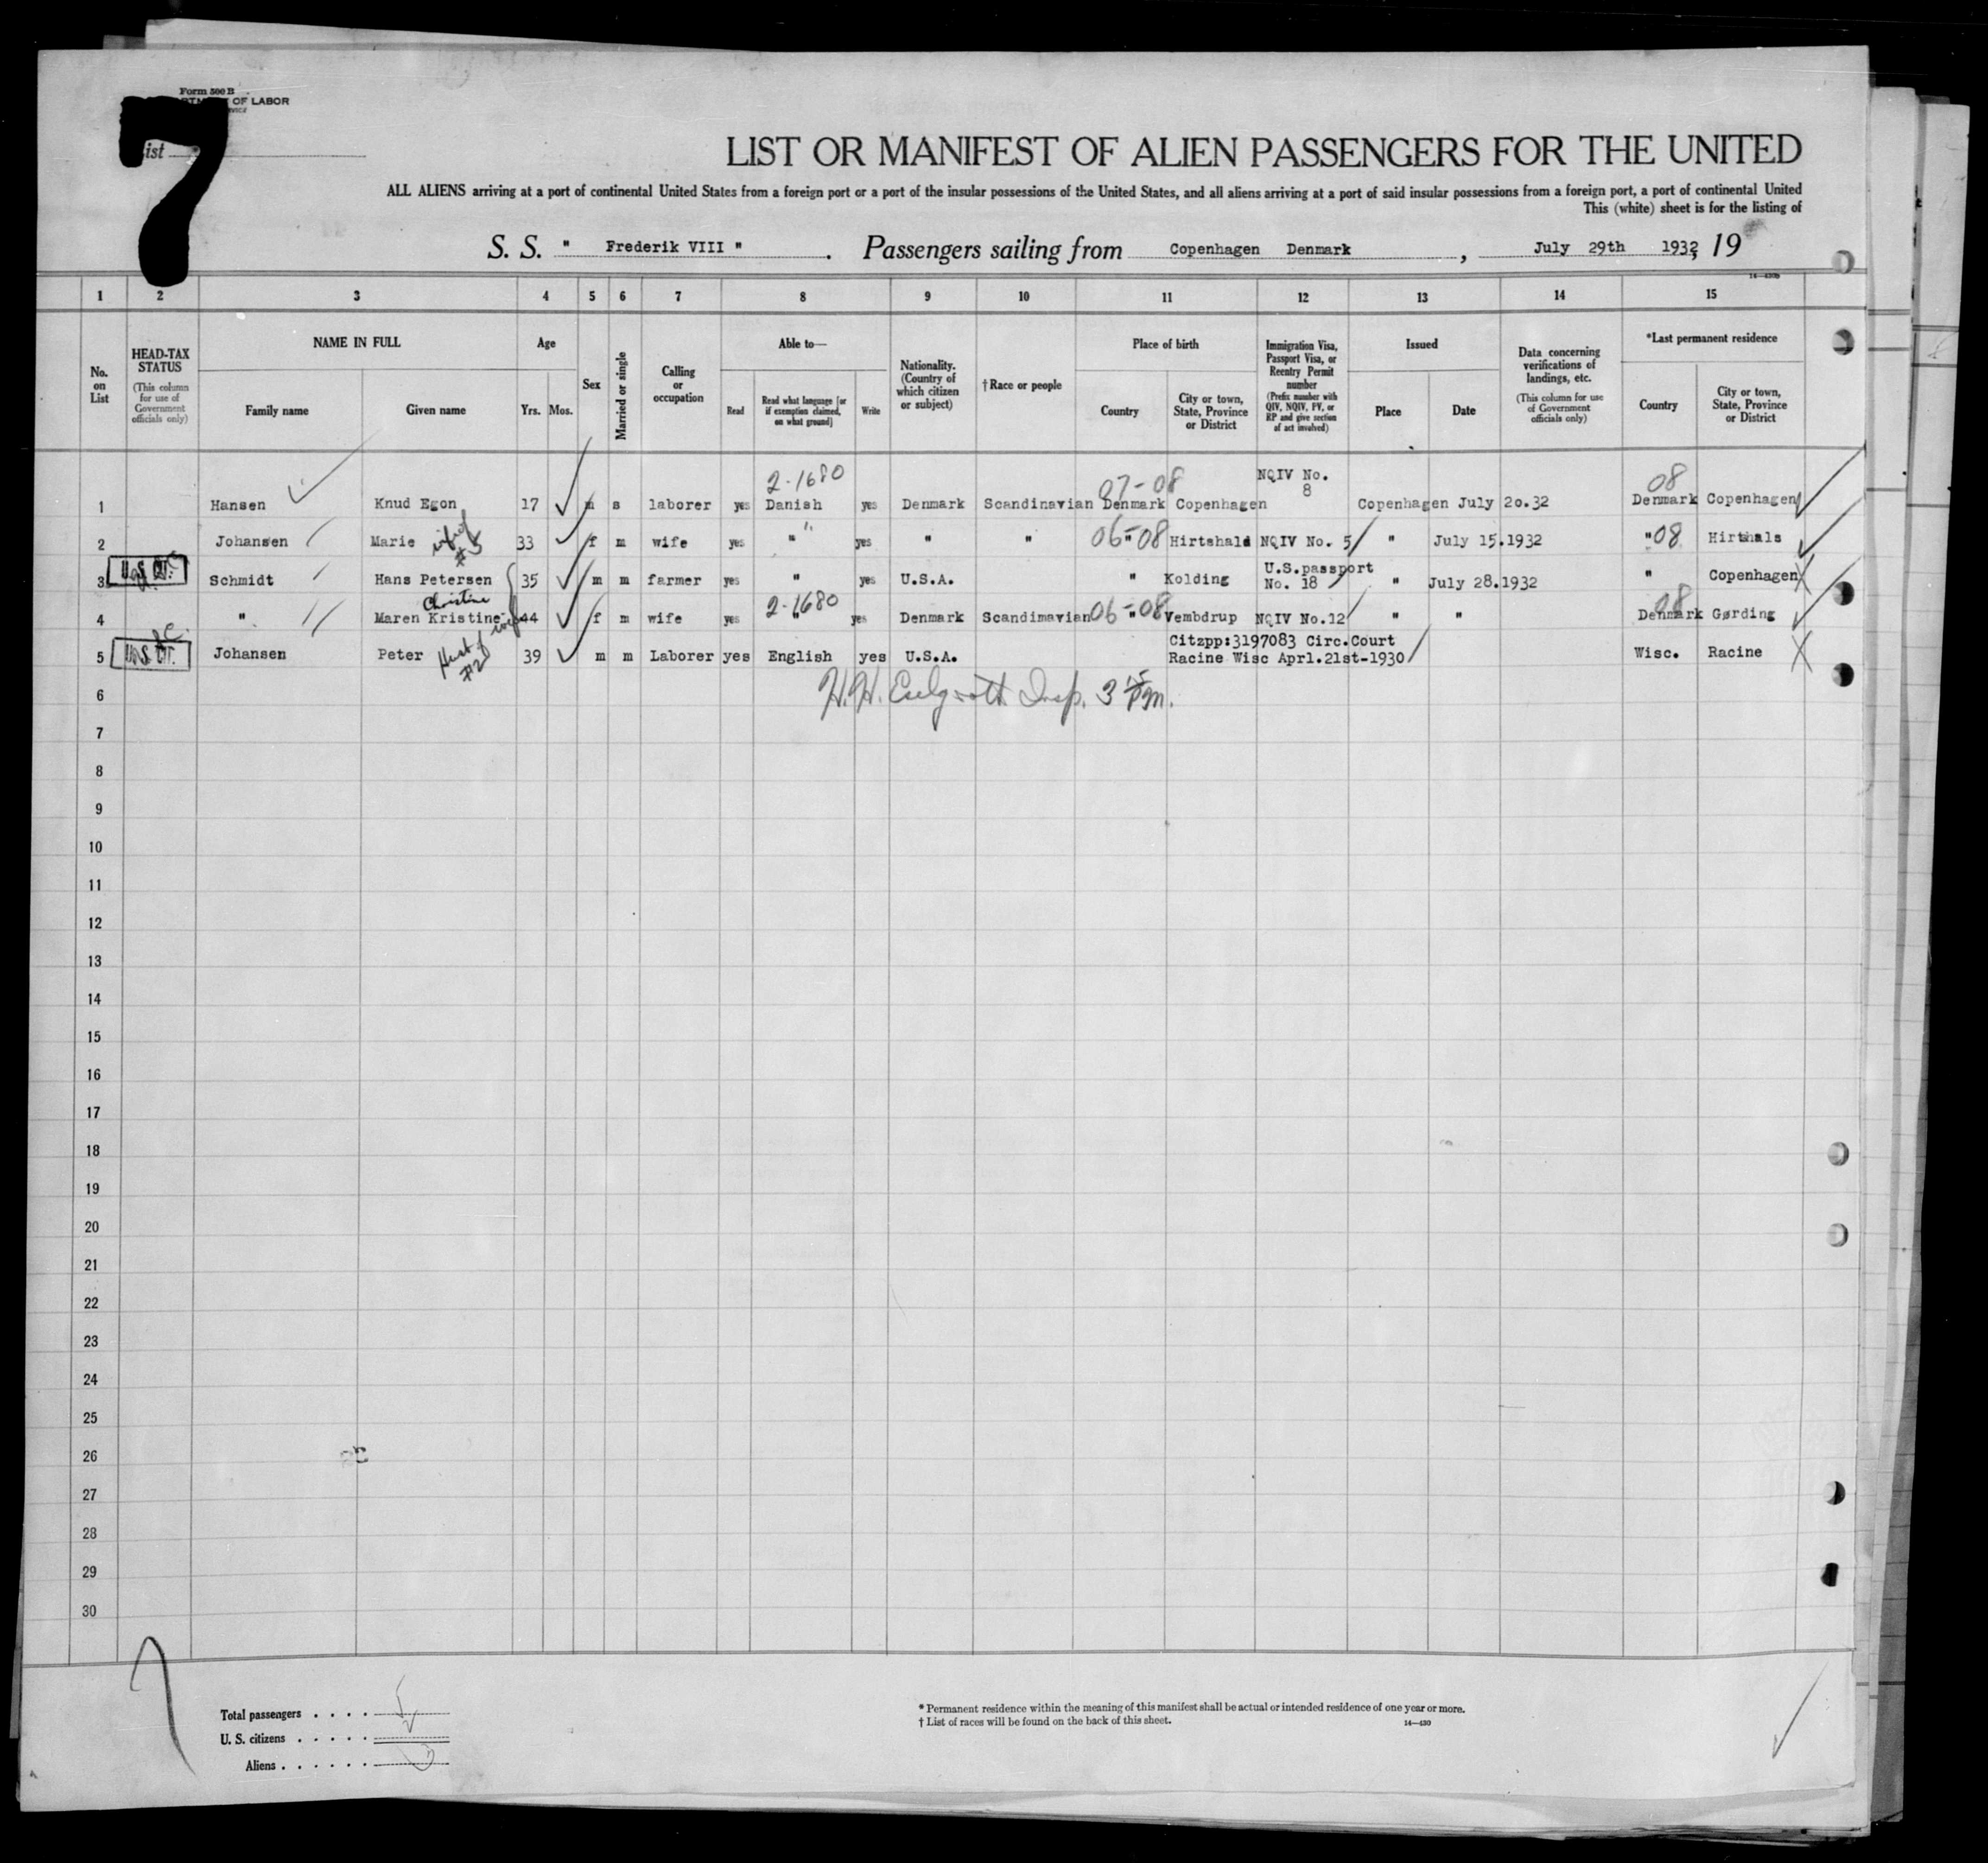 Form 500 B
OF LABOR
7
List
LIST OR MANIFEST OF ALIEN PASSENGERS FOR THE UNITED
ALL ALIENS arriving at a port of continental United States from a foreign port or a port of the insular possessions of the United States, and all aliens arriving at a port of said insular possessions from a foreign port, a port of continental United
This (white) sheet is for the listing of
S. S. " Frederik VIII " . Passengers sailing from Copenhagen Denmark , July 29th 1932, 19
14—430
1 2 3 4 5 6 7 8 9 10 11 12 13 14 15
No. on List
HEAD-TAX STATUS (This column for use of Government officials only)
NAME IN FULL
Family name Given name
Age
Yrs. Mos.
Sex
Married or single
Calling or occupation
Able to—
Read Read what language [or if exemption claimed, on what ground] Write
Nationality. (Country of which citizen or subject)
†Race or people
Place of birth
Country City or town, State, Province or District
Immigration Visa, Passport Visa, or Reentry Permit number (Prefix number with QIV, NQIV, PV, or RP and give section of act involved)
Issued
Place Date
Data concerning verifications of landings, etc. (This column for use of Government officials only)
*Last permanent residence
Country City or town, State, Province or District
2-1680 07-08 NQIV No. 08
1 Hansen Knud Egon 17 m s laborer yes Danish yes Denmark Scandinavian Denmark Copenhagen 8 Copenhagen July 20.32 Denmark Copenhagen
2 Johansen Marie wife of #5 33 f m wife yes " yes " " 06-08 " Hirtshald NQIV No. 5 " July 15.1932 " 08 Hirtshals
3 Schmidt Hans Petersen 35 m m farmer yes " yes U.S.A. " Kolding U.S.passport No. 18 " July 28.1932 " Copenhagen
Christine 2-1680 06-08 08
4 " Maren Kristine wife 44 f m wife yes " yes Denmark Scandimavian " Vembdrup NQIV No.12 " " Denmark Gørding
5 Johansen Peter Hust of #2 39 m m Laborer yes English yes U.S.A. Citzpp:3197083 Circ.Court Racine Wisc Aprl.21st-1930 Wisc. Racine
6
7
8
9
10
11
12
13
14
15
16
17
18
19
20
21
22
23
24
25
26
27
28
29
30
Total passengers . . . . 5
U. S. citizens . . . . . 2
Aliens . . . . . . 3
* Permanent residence within the meaning of this manifest shall be actual or intended residence of one year or more.
† List of races will be found on the back of this sheet. 14—430